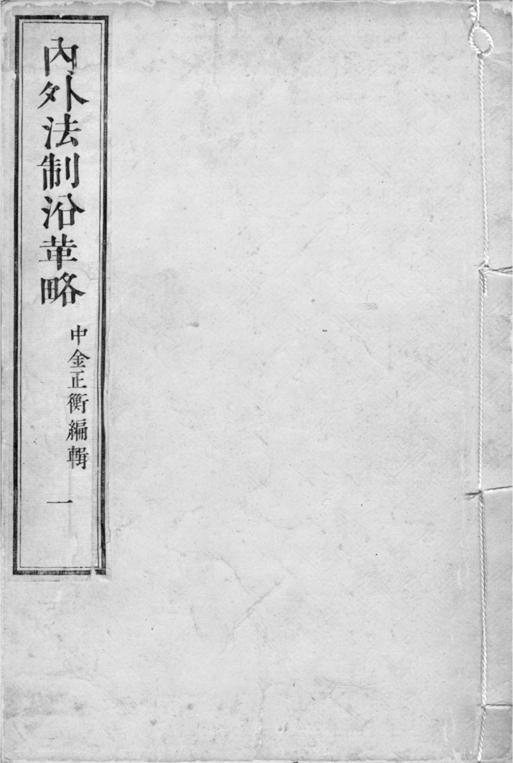 內外法制沿革略
中金正衡編輯
一